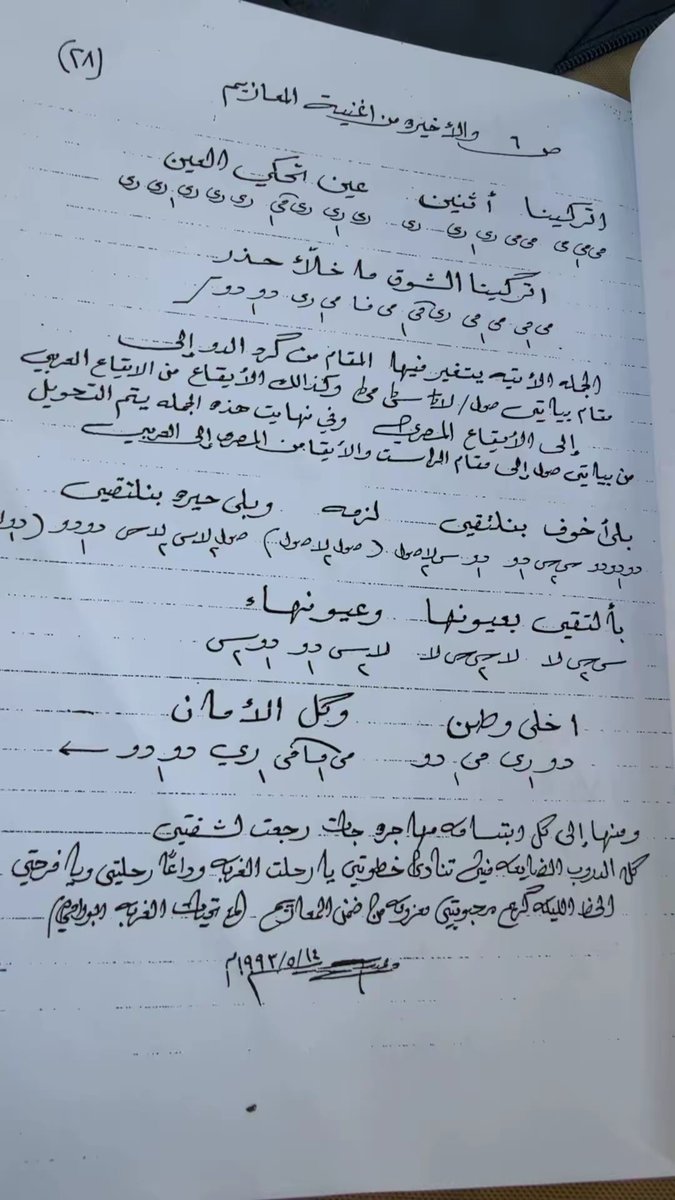 (٢٨)
ص ٦ والأخيره من اغنية المعازيم
اتركينا أثنين عين اتحكي العين
مي مي مي مي مي ري ري ري ري ري مي ري ري ري ري
اتركينا الشوق ما خلّاك حذر
مي مي مي مي ري مي مي فا مي ري دو دو
الجمله الأتيه يتغير فيها المقام من كرد الدو إلى
مقام بياتي صول/ وكذالك الأيقاع من الايقاع العربي
إلى الأيقاع المصري وفي نهايت هذه الجمله يتم التحويل
من بياتي صول إلى مقام الراست والأيقا من المصري إلى العربي
بلا خوف بنلتقي لزمه وبلى حيره بنلتقي
دو دو دو دو سي سي دو دو سي لا صول (صول لا صول) صول لا سي لا سي دو دو
بألتقي بعيونها وعيونهاء
سي سي لا لا سي سي لا لا سي دو دو سي
احلى وطن وكل الأمان
دو ري مي دو مي فا مي ري دو دو ←
ومنها إلى كل ابتسامه مهاجره جات رجعت لشفتي
كل الدروب الضايعه مني تنادي خطوتي يا رحلت الغربه وداعاً رحلتي ويا فرحتي
الحظ الليله كرم محبوبتي معزومه من ضمن المعازيم
١٩٩٣/٥/١٤م